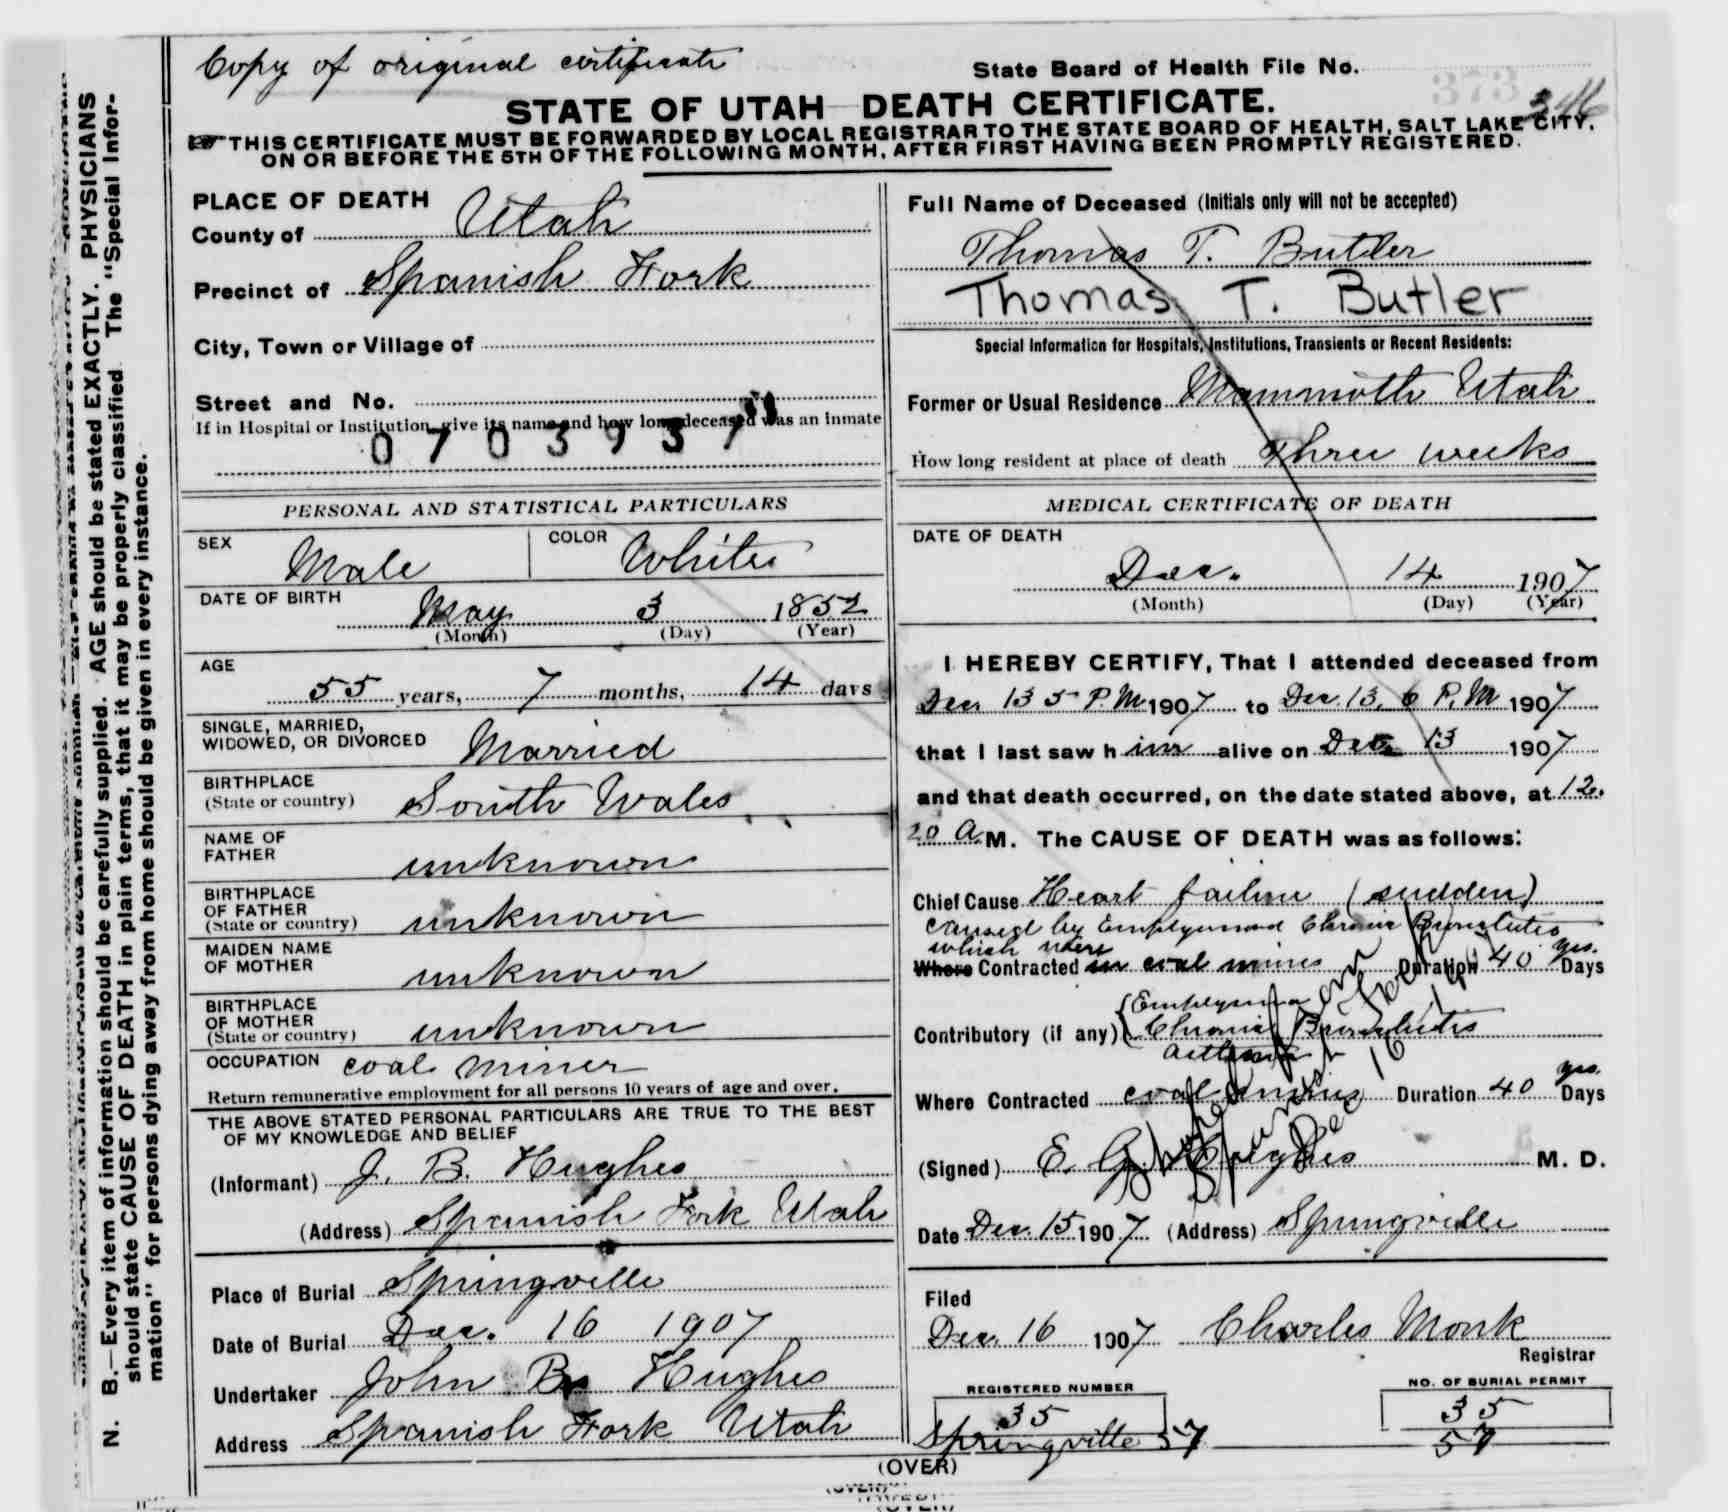 Copy of original certificate
State Board of Health File No.
373
346
STATE OF UTAH—DEATH CERTIFICATE.
THIS CERTIFICATE MUST BE FORWARDED BY LOCAL REGISTRAR TO THE STATE BOARD OF HEALTH, SALT LAKE CITY,
ON OR BEFORE THE 5TH OF THE FOLLOWING MONTH, AFTER FIRST HAVING BEEN PROMPTLY REGISTERED.
N. B.—Every item of information should be carefully supplied. AGE should be stated EXACTLY. PHYSICIANS
should state CAUSE OF DEATH in plain terms, that it may be properly classified The "Special Infor-
mation" for persons dying away from home should be given in every instance.
PLACE OF DEATH
County of Utah
Precinct of Spanish Fork
City, Town or Village of
Street and No.
If in Hospital or Institution, give its name and how long deceased was an inmate
0703937
PERSONAL AND STATISTICAL PARTICULARS
SEX Male COLOR White
DATE OF BIRTH
May 3 1852
(Month) (Day) (Year)
AGE
55 years, 7 months, 14 days
SINGLE, MARRIED,
WIDOWED, OR DIVORCED Married
BIRTHPLACE
(State or country) South Wales
NAME OF
FATHER unknown
BIRTHPLACE
OF FATHER
(State or country) unknown
MAIDEN NAME
OF MOTHER unknown
BIRTHPLACE
OF MOTHER
(State or country) unknown
OCCUPATION coal miner
Return remunerative employment for all persons 10 years of age and over.
THE ABOVE STATED PERSONAL PARTICULARS ARE TRUE TO THE BEST
OF MY KNOWLEDGE AND BELIEF
(Informant) J. B. Hughes
(Address) Spanish Fork Utah
Place of Burial Springville
Date of Burial Dec. 16 1907
Undertaker John B. Hughes
Address Spanish Fork Utah
Full Name of Deceased (Initials only will not be accepted)
Thomas T. Butler
Thomas T. Butler
Special Information for Hospitals, Institutions, Transients or Recent Residents:
Former or Usual Residence Mammoth Utah
How long resident at place of death Three weeks
MEDICAL CERTIFICATE OF DEATH
DATE OF DEATH
Dec. 14 1907
(Month) (Day) (Year)
I HEREBY CERTIFY, That I attended deceased from
Dec 13 5 P.M 1907 to Dec. 13, 6 P.M 1907
that I last saw h im alive on Dec 13 1907
and that death occurred, on the date stated above, at 12.
20 A M. The CAUSE OF DEATH was as follows:
Chief Cause Heart failure (sudden)
caused by Emphysema and Chronic Bronchitis
which were
Where Contracted in coal mines Duration 40 yrs. Days
Emphysema
Contributory (if any) Chronic Bronchitis
asthma
Where Contracted coal mines Duration 40 yrs. Days
Spanish Fork
Dec 16 1907
(Signed) E G Hughes M. D.
Date Dec. 15 1907 (Address) Springville
Filed
Dec. 16 1907 Charles Monk
Registrar
REGISTERED NUMBER
35
Springville 57
NO. OF BURIAL PERMIT
35
57
(OVER)